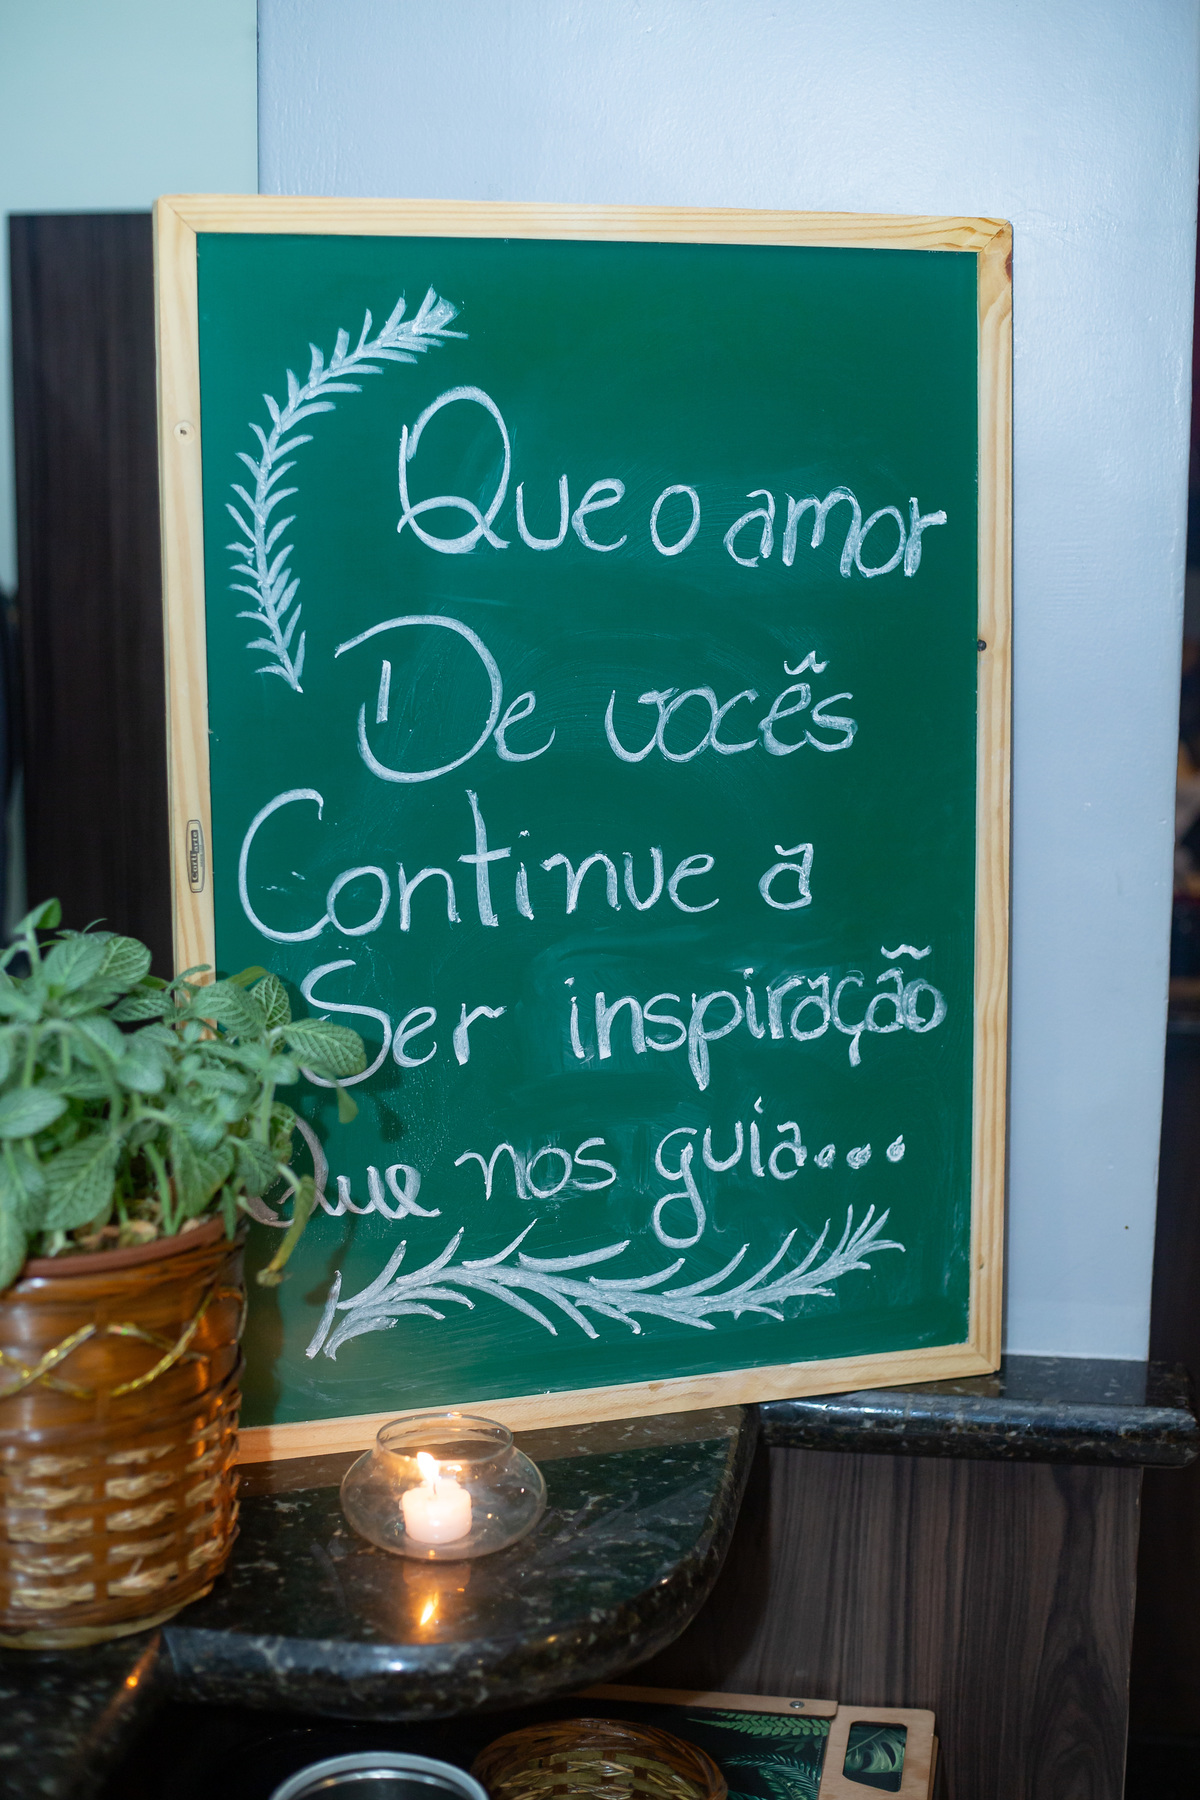 Que o amor
De vocês
Continue a
Ser inspiração
Que nos guia...